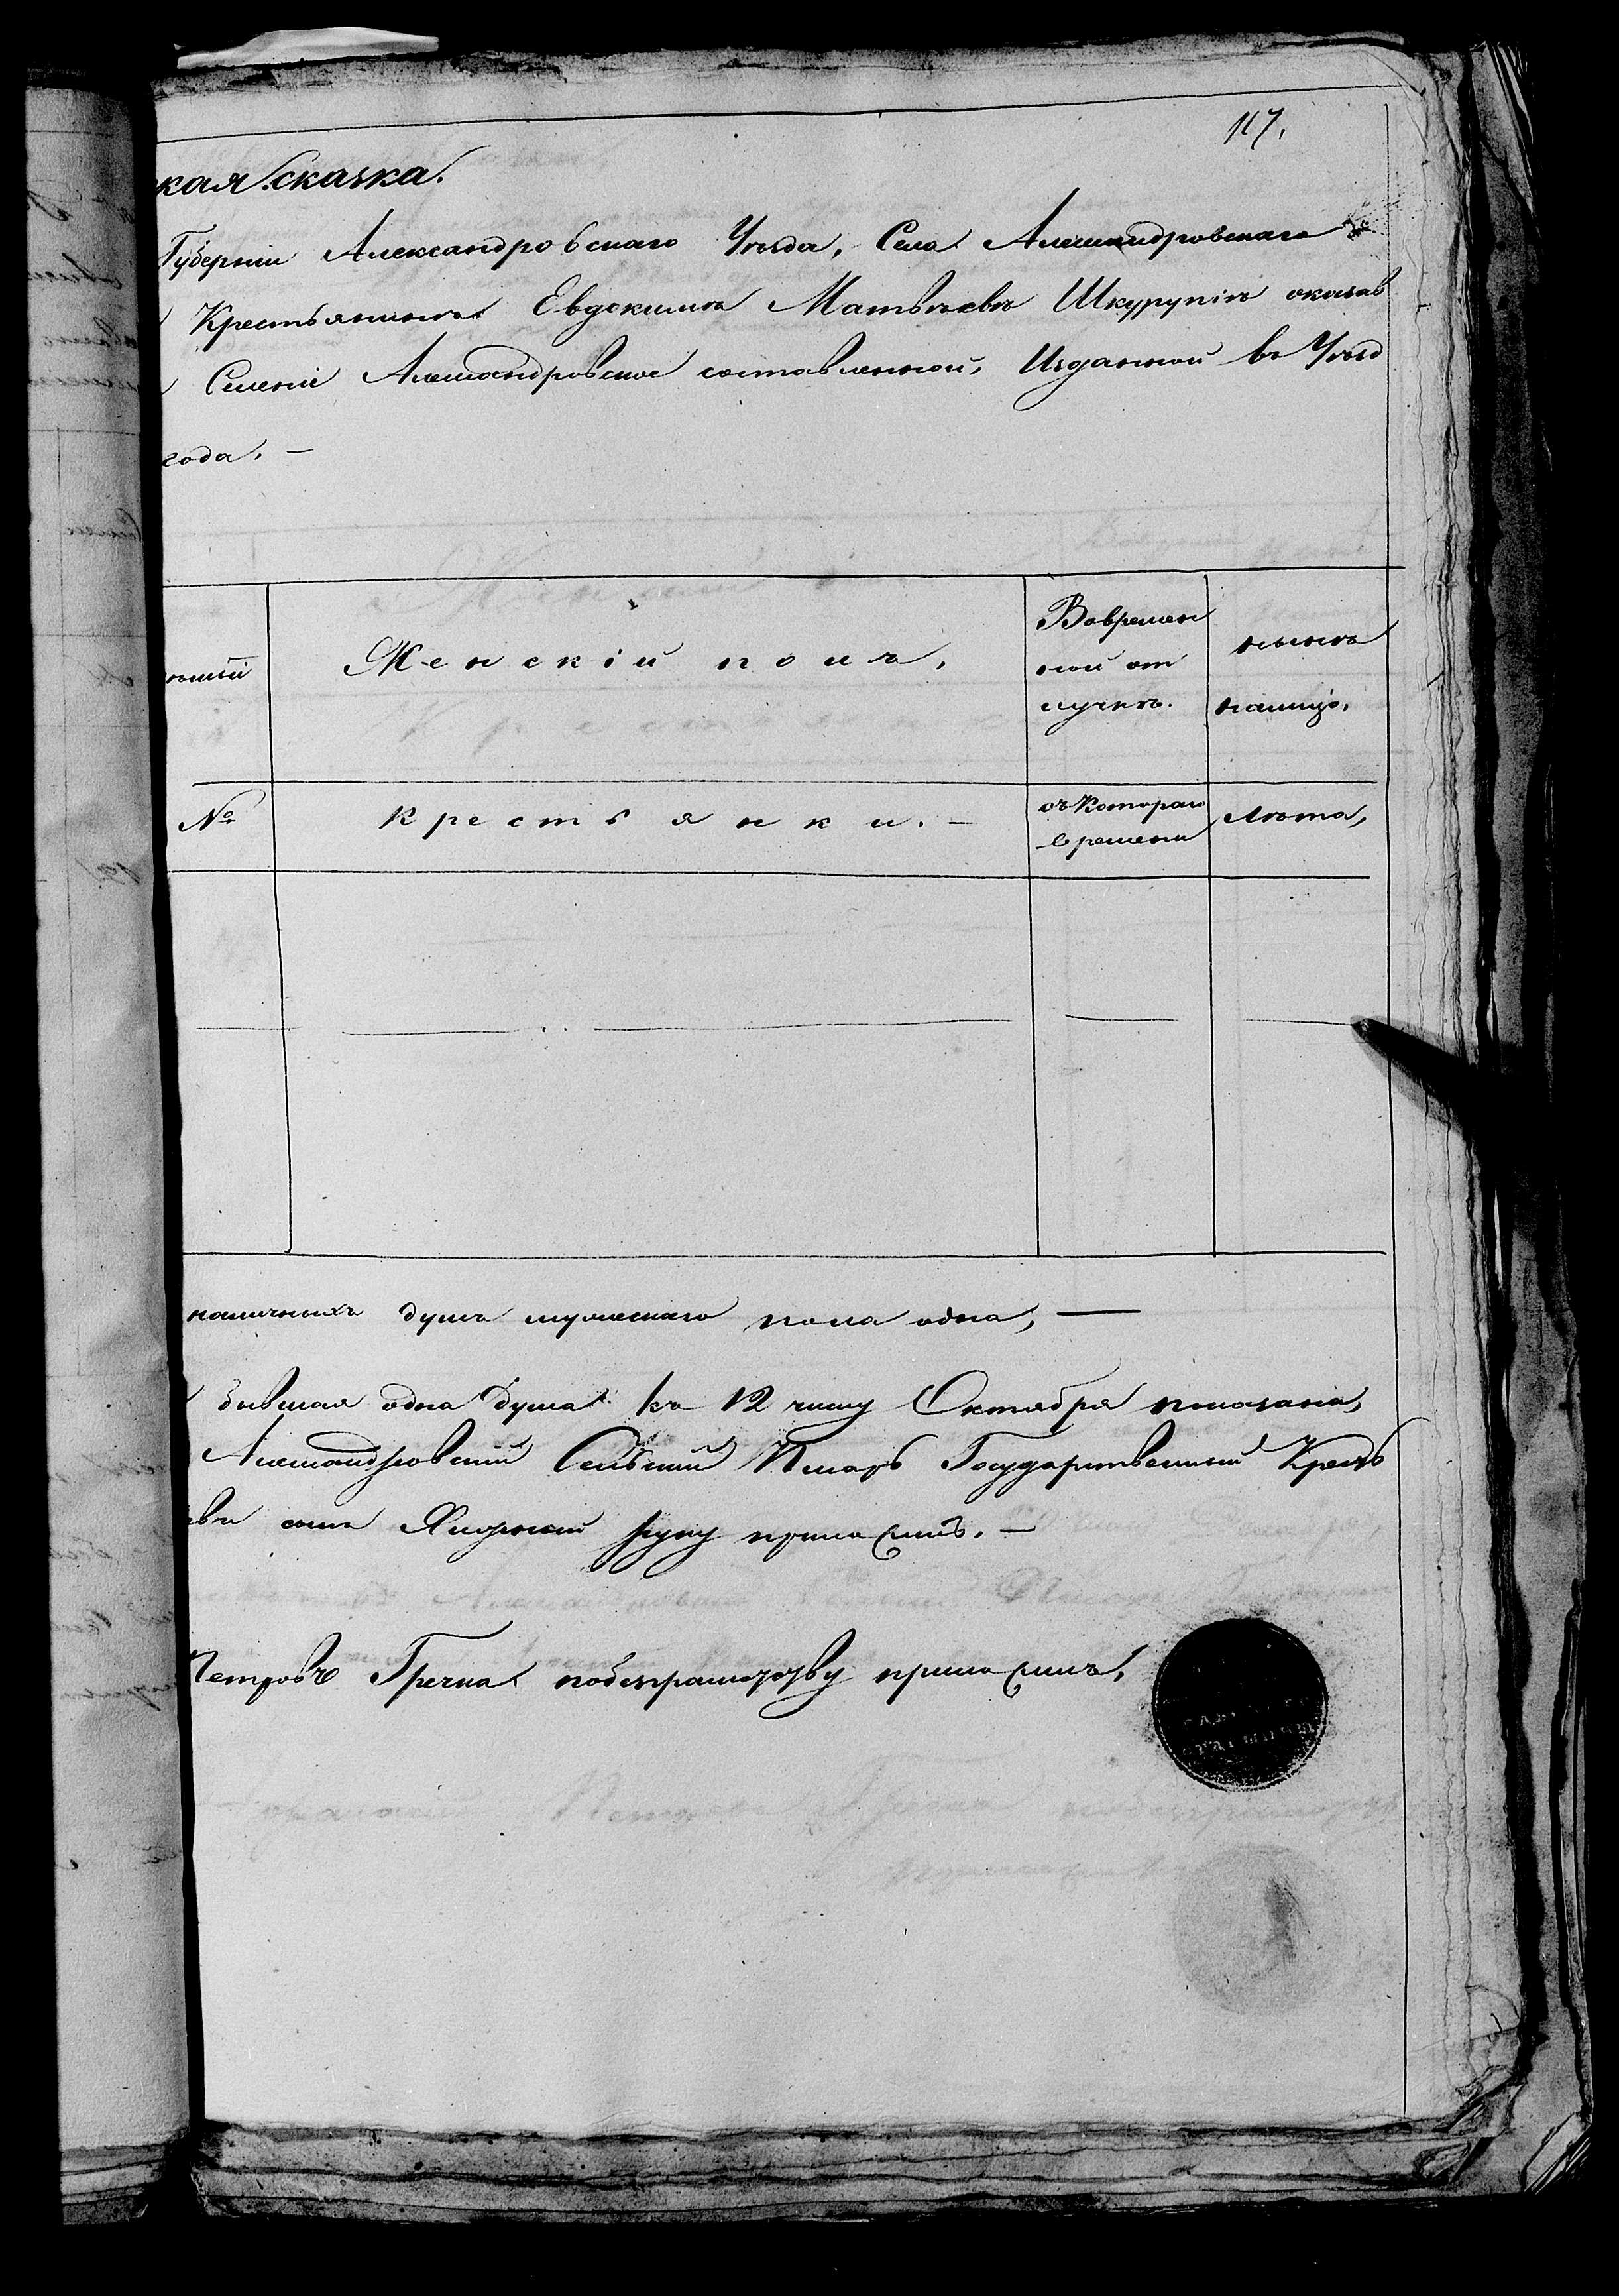 117.
кая сказка.
Губерніи Александровскаго Уѣзда, Села Александровскаго
Крестьянинъ Евдокимъ Матвѣевъ Шкурупій оказав
Селеніе Александровское составленной, Изданной въ Уѣзд
года. —
Женскій полъ,
Вовремен
ной от
лучкѣ.
нынѣ
налицо,
№
Крестьянки. —
съ Котораго
времени
Лѣта,
наличныхъ душъ мужескаго пола одна, —
бывшая одна душа къ 12 числу Октября показана,
Александровскій Сельскій Писарь Государственный Крест
сынъ руку приложилъ. —
Петровъ Гречка приложилъ,